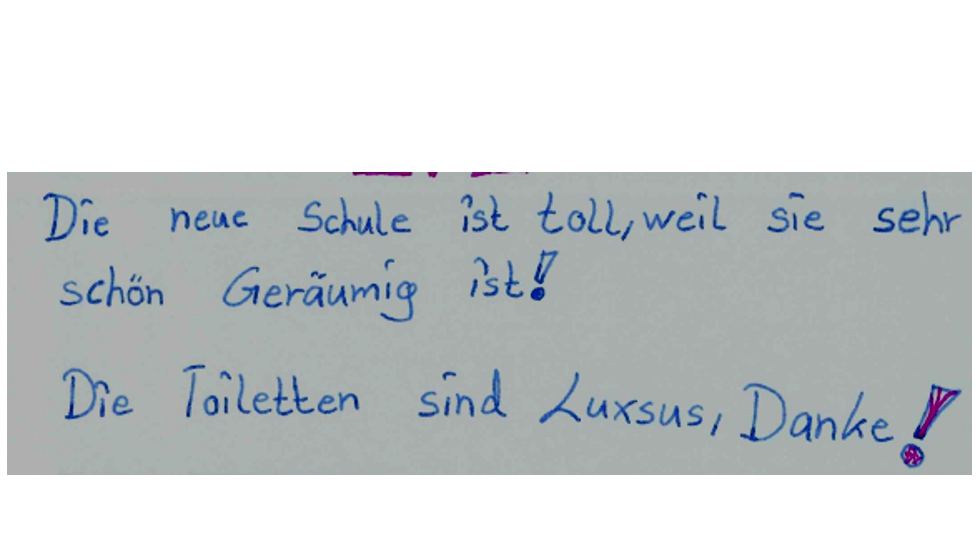 Die neue Schule ist toll, weil sie sehr
schön Geräumig ist!
Die Toiletten sind Luxsus, Danke!